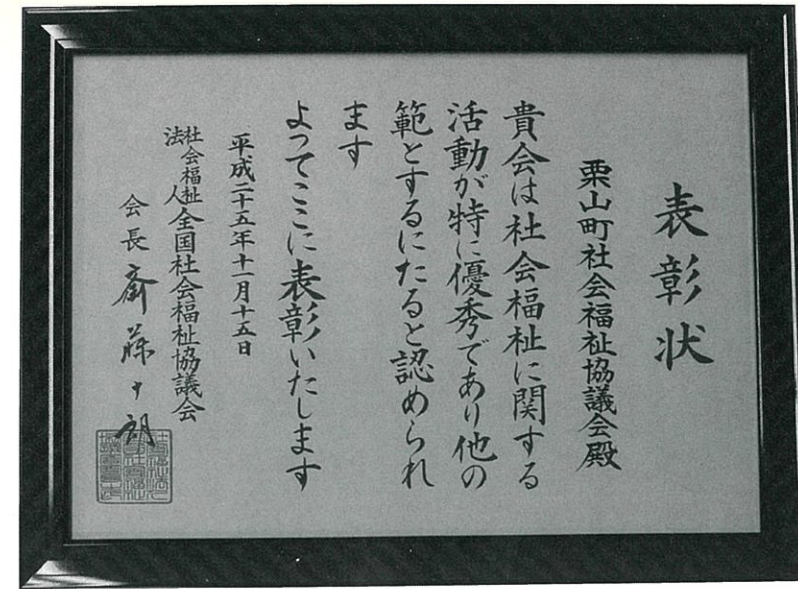 表彰状
栗山町社会福祉協議会殿
貴会は社会福祉に関する
活動が特に優秀であり他の
範とするにたると認められ
ます
よってここに表彰いたします
平成二十五年十一月十五日
社会福祉法人全国社会福祉協議会
会長 斎藤十朗